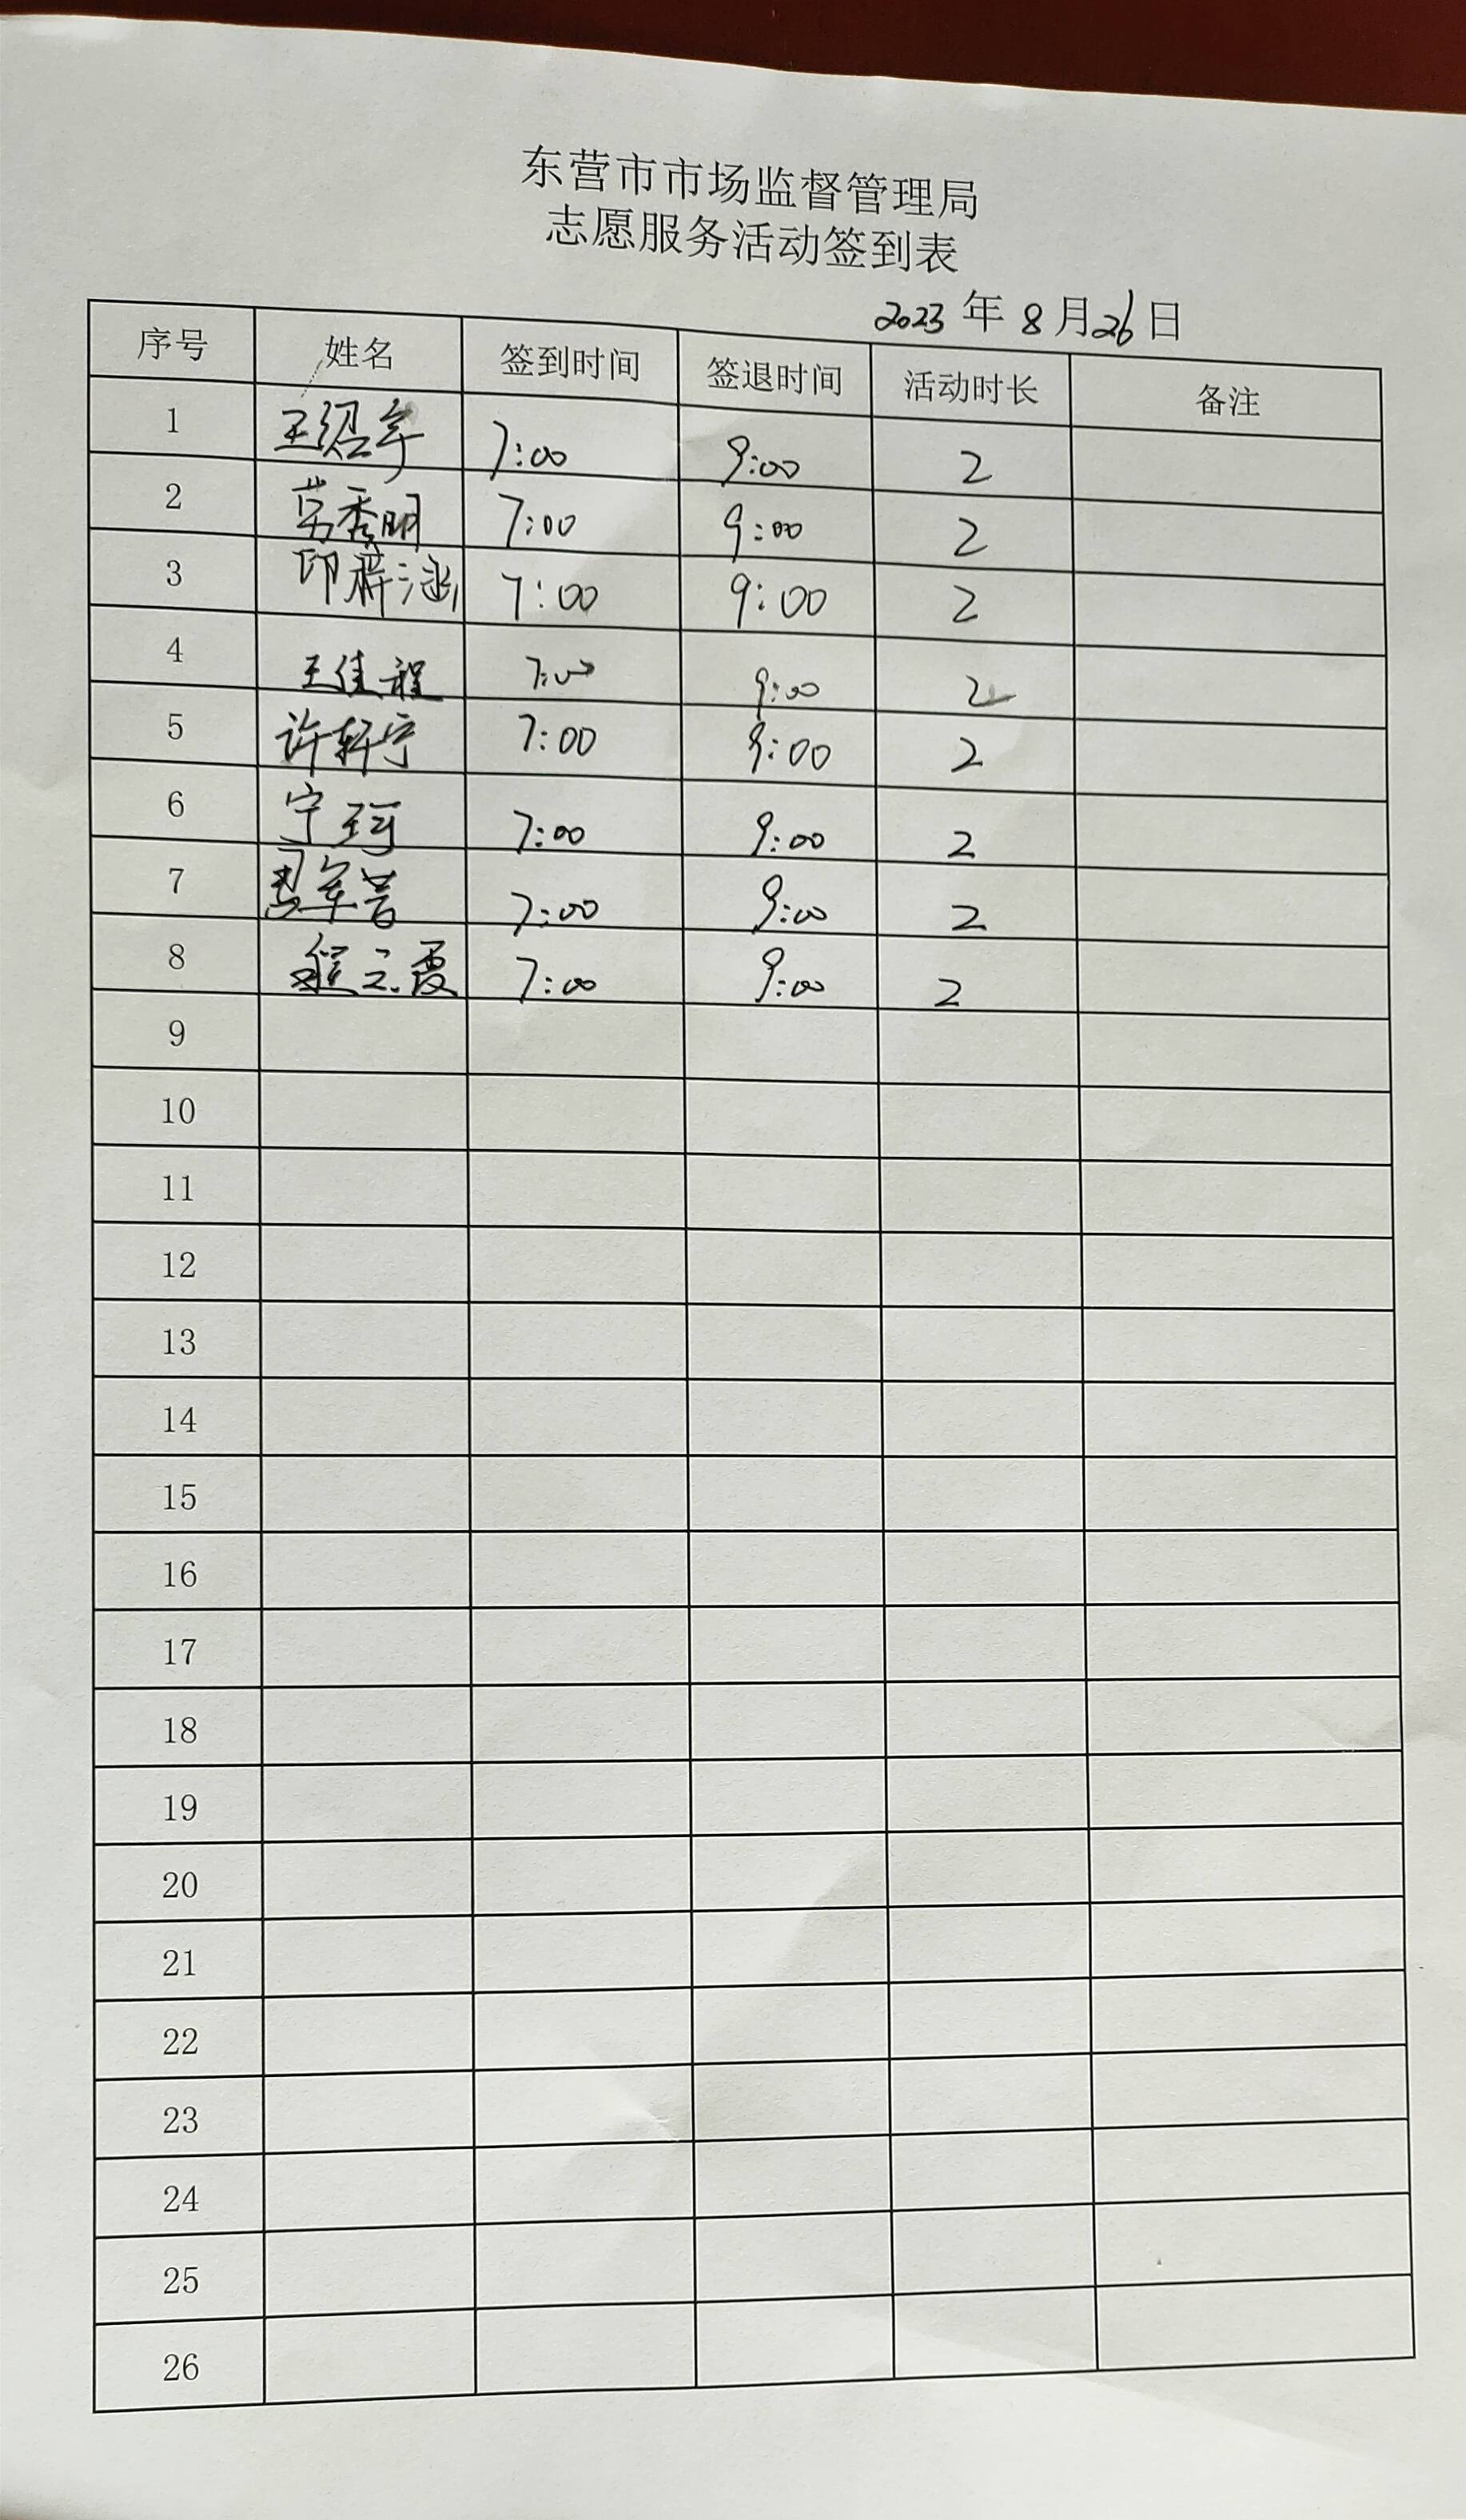 东营市市场监督管理局
志愿服务活动签到表
2023 年 8 月 26 日
序号 姓名 签到时间 签退时间 活动时长 备注
1 王绍军 7:00 9:00 2
2 劳秀明 7:00 9:00 2
3 印 涵 7:00 9:00 2
4 王佳程 7:00 9:00 2
5 许轩宁 7:00 9:00 2
6 宁珂 7:00 9:00 2
7 7:00 9:00 2
8 程云霞 7:00 9:00 2
9
10
11
12
13
14
15
16
17
18
19
20
21
22
23
24
25
26